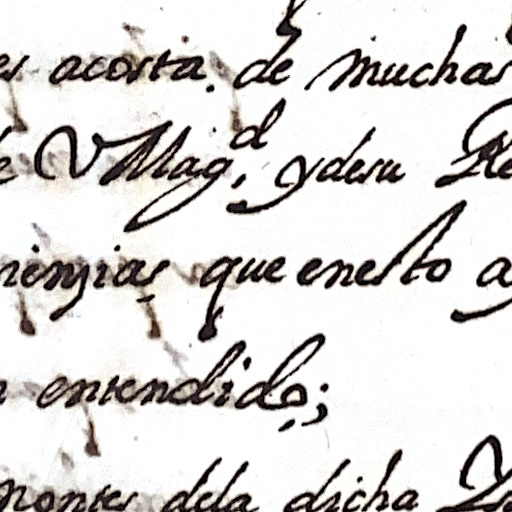 es acosta. de muchas
de VMag.d ydesu Re
nienzias que enesto a
n entendido;
montes dela dicha Y